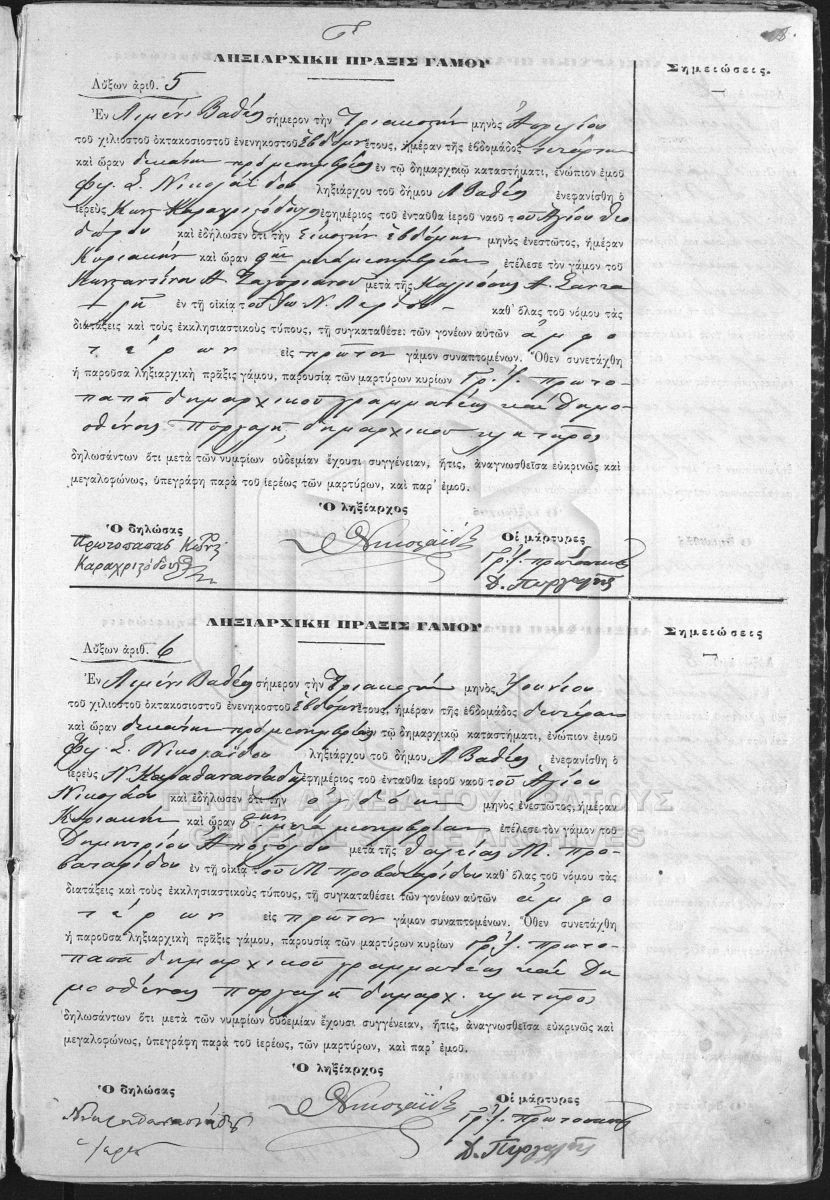 ΛΗΞΙΑΡΧΙΚΗ ΠΡΑΞΙΣ ΓΑΜΟΥ
Σημειώσεις.
Αὔξων ἀριθ. 5
Ἐν Λιμένι Βαθέος σήμερον τὴν Τριακοστὴν μηνὸς Ἀπριλίου
τοῦ χιλιοστοῦ ὀκτακοσιοστοῦ ἐνενηκοστοῦ ἑβδόμου ἔτους, ἡμέραν τῆς ἑβδομάδος τετάρτην
καὶ ὥραν δεκάτην πρὸ μεσημβρίας ἐν τῷ δημαρχικῷ καταστήματι, ἐνώπιον ἐμοῦ
Φιλ. Σ. Νικολαΐδου ληξιάρχου τοῦ δήμου Λ Βαθέος ἐνεφανίσθη ὁ
ἱερεὺς Κων Καραχριζόδουλος ἐφημέριος τοῦ ἐνταῦθα ἱεροῦ ναοῦ τοῦ Ἁγίου Θεο
δώρου καὶ ἐδήλωσεν ὅτι τὴν Εἰκοστὴν ἑβδόμην μηνὸς ἐνεστῶτος, ἡμέραν
Κυριακὴν καὶ ὥραν μετὰ μεσημβρίαν ἐτέλεσε τὸν γάμον τοῦ
Κωνσταντίνου Α μετὰ τῆς Καλλιόπης Α. Σαντα
ἐν τῇ οἰκίᾳ τοῦ Ν. καθ' ὅλας τοῦ νόμου τὰς
διατάξεις καὶ τοὺς ἐκκλησιαστικοὺς τύπους, τῇ συγκαταθέσει τῶν γονέων αὐτῶν ἀμφο
τέρων εἰς πρῶτον γάμον συναπτομένων. Ὅθεν συνετάχθη
ἡ παροῦσα ληξιαρχικὴ πρᾶξις γάμου, παρουσίᾳ τῶν μαρτύρων κυρίων Γρ. Ι. Πρωτο-
παπᾶ δημαρχικοῦ γραμματέως καὶ Δημο-
σθένους Πυργαλῆ δημαρχικοῦ κλητῆρος
δηλωσάντων ὅτι μετὰ τῶν νυμφίων οὐδεμίαν ἔχουσι συγγένειαν, ἥτις, ἀναγνωσθεῖσα εὐκρινῶς καὶ
μεγαλοφώνως, ὑπεγράφη παρὰ τοῦ ἱερέως τῶν μαρτύρων, καὶ παρ' ἐμοῦ.
Ὁ ληξίαρχος
Ὁ δηλώσας
Οἱ μάρτυρες
Πρωτοπαπᾶς Κων
Καραχριζόδουλος
Φ Νικολαΐδης
Γρ. Ι. Πρωτοπαπᾶς
Δ. Πυργαλῆς
ΛΗΞΙΑΡΧΙΚΗ ΠΡΑΞΙΣ ΓΑΜΟΥ
Σημειώσεις
Αὔξων ἀριθ. 6
Ἐν Λιμένι Βαθέος σήμερον τὴν Τριακοστὴν μηνὸς Ἰουνίου
τοῦ χιλιοστοῦ ὀκτακοσιοστοῦ ἐνενηκοστοῦ ἑβδόμου ἔτους, ἡμέραν τῆς ἑβδομάδος δευτέραν
καὶ ὥραν δεκάτην πρὸ μεσημβρίας ἐν τῷ δημαρχικῷ καταστήματι, ἐνώπιον ἐμοῦ
Φιλ. Σ. Νικολαΐδου ληξιάρχου τοῦ δήμου Λ Βαθέος ἐνεφανίσθη ὁ
ἱερεὺς Ν. Καραθανασιάδης ἐφημέριος τοῦ ἐνταῦθα ἱεροῦ ναοῦ τοῦ Ἁγίου
Νικολάου καὶ ἐδήλωσεν ὅτι τὴν ὀγδόην μηνὸς ἐνεστῶτος, ἡμέραν
Κυριακὴν καὶ ὥραν μετὰ μεσημβρίαν ἐτέλεσε τὸν γάμον τοῦ
Δημητρίου Ἀποστόλου μετὰ τῆς Θαλείας Μ. Προ-
βαταρίδου ἐν τῇ οἰκίᾳ τοῦ Μ Προβαταρίδου καθ' ὅλας τοῦ νόμου τὰς
διατάξεις καὶ τοὺς ἐκκλησιαστικοὺς τύπους, τῇ συγκαταθέσει τῶν γονέων αὐτῶν ἀμφο
τέρων εἰς πρῶτον γάμον συναπτομένων. Ὅθεν συνετάχθη
ἡ παροῦσα ληξιαρχικὴ πρᾶξις γάμου, παρουσίᾳ τῶν μαρτύρων κυρίων Γρ. Ι. Πρωτο-
παπᾶ δημαρχικοῦ γραμματέως καὶ Δη
μοσθένους Πυργαλῆ δημαρχ. κλητῆρος
δηλωσάντων ὅτι μετὰ τῶν νυμφίων οὐδεμίαν ἔχουσι συγγένειαν, ἥτις, ἀναγνωσθεῖσα εὐκρινῶς καὶ
μεγαλοφώνως, ὑπεγράφη παρὰ τοῦ ἱερέως, τῶν μαρτύρων, καὶ παρ' ἐμοῦ.
Ὁ ληξίαρχος
Ὁ δηλώσας
Οἱ μάρτυρες
Ν Καραθανασιάδης
ἱερεὺς
Φ Νικολαΐδης
Γρ. Ι. Πρωτοπαπᾶς
Δ. Πυργαλῆς
ΓΕΝΙΚΑ ΑΡΧΕΙΑ ΤΟΥ ΚΡΑΤΟΥΣ
GENERAL STATE ARCHIVES